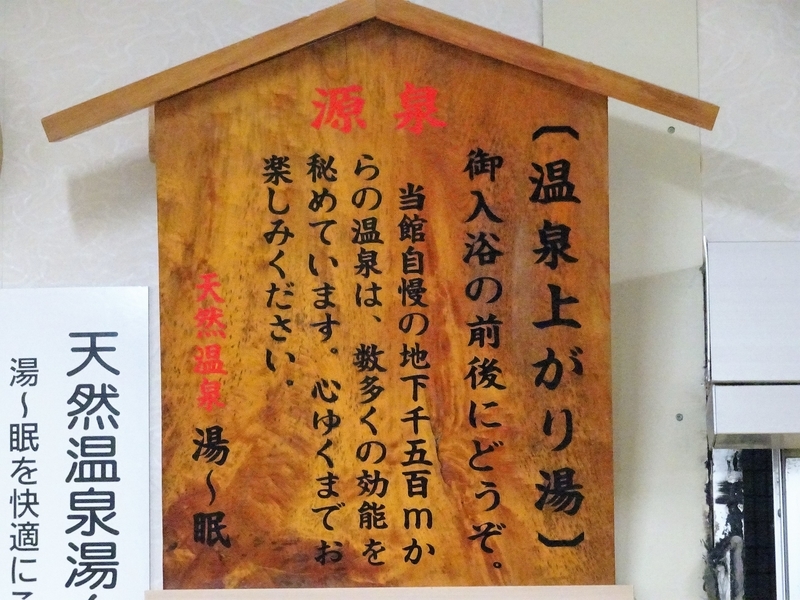 源泉
〔温泉上がり湯〕
御入浴の前後にどうぞ。
当館自慢の地下千五百mか
らの温泉は、数多くの効能を
秘めています。心ゆくまでお
楽しみください。
天然温泉 湯〜眠
天然温泉湯〜
湯〜眠を快適に